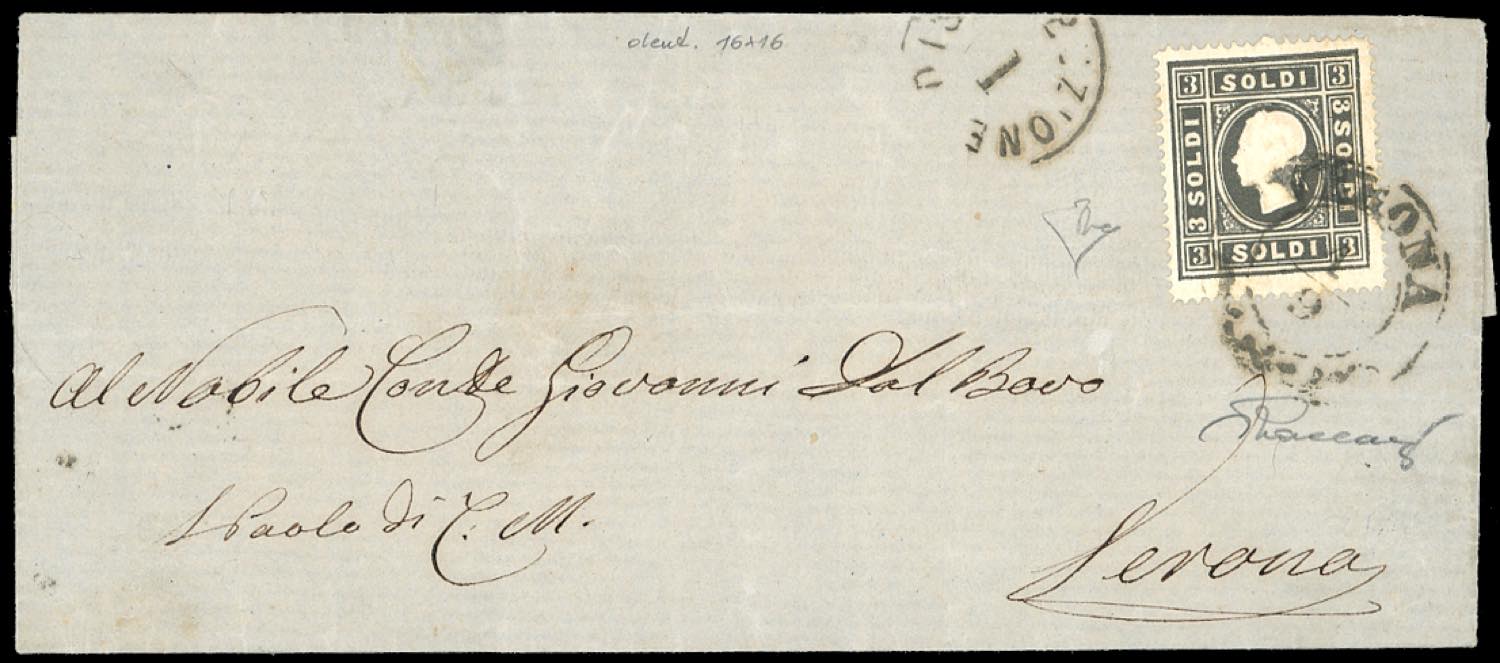 dent. 16x16
DISTRIBUZIONE
1
3 SOLDI 3
3 SOLDI
3 SOLDI
3 SOLDI 3
VERONA
Al Nobile Conte Giovanni Dal Bovo
S Paolo di C. M.
Verona